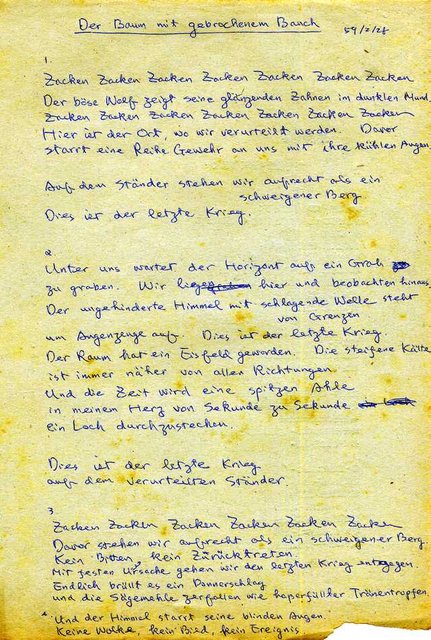 Der Baum mit gebrochenem Bauch
59/2/28
1.
Zacken Zacken Zacken Zacken Zacken Zacken Zacken
Der böse Wolf zeigt seine glänzenden Zähnen im dunklen Mund.
Zacken Zacken Zacken Zacken Zacken Zacken Zacken
Hier ist der Ort, wo wir verurteilt werden. Davor
starrt eine Reihe Gewehr an uns mit ihre kühlen Augen.
Auf dem Ständer stehen wir aufrecht als ein
schweigener Berg
Dies ist der letzte Krieg.
2.
Unter uns wartet der Horizont auf ein Grab
zu graben. Wir hier und beobachten hinaus.
Der ungehinderte Himmel mit schlagende Welle steht
von Grenzen
um Augenzeuge auf. Dies ist der letzte Krieg.
Der Raum hat ein Eisfeld geworden. Die steifene Kälte
ist immer näher von allen Richtungen.
Und die Zeit wird eine spitzen Ahle
in meinen Herz von Sekunde zu Sekunde
ein Loch durchzustechen.
Dies ist der letzte Krieg
auf dem verurteilten Ständer.
3
Zacken Zacken Zacken Zacken Zacken Zacken
Davor stehen wir aufrecht als ein schweigener Berg.
Kein Bitten, kein Zurücktreten.
Mit festen Ursache gehen wir den letzten Krieg entgegen.
Endlich brüllt es ein Donnerschlag
und die Sägemehle zerfallen wie Tränentropfen.
Und der Himmel starrt seine blinden Augen.
Keine Wolke, kein Bild, kein Ereignis